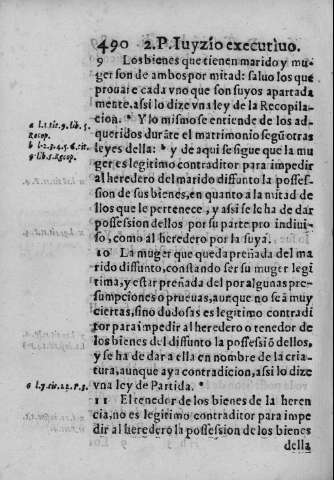 490 2. P. Iuyzio executiuo.
9 Los bienes que tienen marido y mu-
ger son de ambos por mitad: saluo los que
prouare cada vno que son suyos apartada
mente, assi lo dize vna ley de la Recopila-
cion. ᵃ Y lo mismo se entiende de los ad-
a l.1.tit.9.lib.5.
Recop.
queridos durāte el matrimonio segū otras
b l.2.3.4.5.6.tit.
9.lib.5.Recop.
leyes della: ᵇ y de aqui se sigue que la mu
ger es legitimo contraditor para impedir
al heredero del marido diffunto la posses-
sion de sus bienes, en quanto a la mitad de
llos que le pertenece, y assi se le ha de dar
possession dellos por su parte pro indiui-
so, como al heredero por la suya.
10 La muger que queda preñada del ma
rido diffunto, constando ser su muger legi
tima, y estar preñada del por algunas pre-
sumpciones o prueuas, aunque no seā muy
ciertas, sino dudosas es legitimo contradi
tor para impedir al heredero o tenedor de
los bienes del diffunto la possessiō dellos,
y se ha de dar a ella en nombre de la cria-
tura, aunque aya contradicion, assi lo dize
o l.7.tit.22.P.3.
vna ley de Partida.
11 El tenedor de los bienes de la heren
cia, no es legitimo contraditor para impe
dir al heredero la possession de los bienes
della